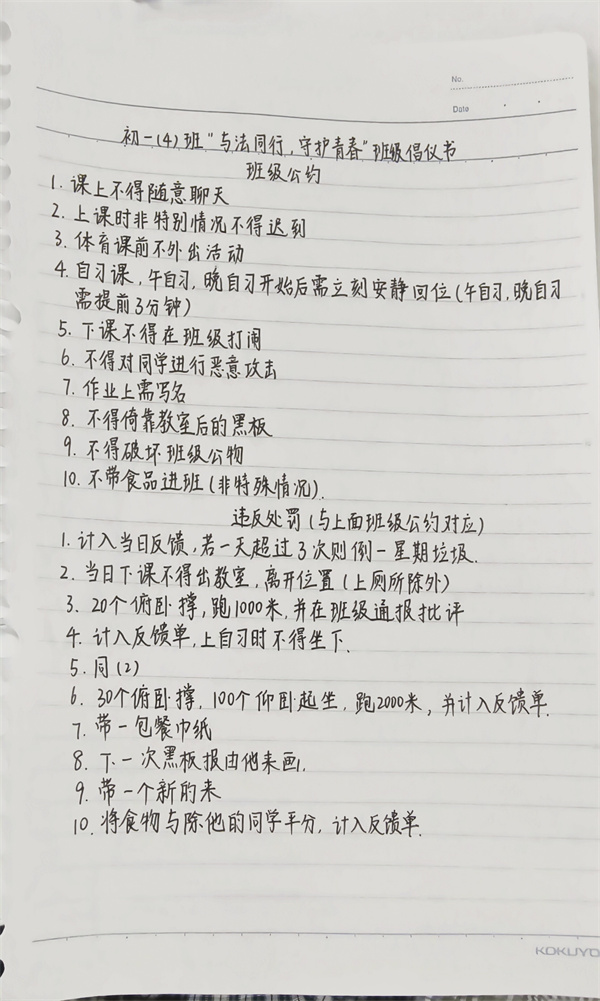 No.
Date
初一(4)班"与法同行,守护青春"班级倡仪书
班级公约
1. 课上不得随意聊天
2. 上课时非特别情况不得迟到
3. 体育课前不外出活动
4. 自习课,午自习,晚自习开始后需立刻安静回位(午自习,晚自习
需提前3分钟)
5. 下课不得在班级打闹
6. 不得对同学进行恶意攻击
7. 作业上需写名
8. 不得倚靠教室后的黑板
9. 不得破坏班级公物
10. 不带食品进班(非特殊情况).
违反处罚(与上面班级公约对应)
1. 计入当日反馈,若一天超过3次则倒一星期垃圾.
2. 当日下课不得出教室,离开位置(上厕所除外)
3. 20个俯卧撑,跑1000米,并在班级通报批评
4. 计入反馈单,上自习时不得坐下.
5. 同(2)
6. 30个俯卧撑,100个仰卧起坐,跑2000米,并计入反馈单.
7. 带一包餐巾纸
8. 下一次黑板报由他来画.
9. 带一个新的来
10. 将食物与除他的同学平分,计入反馈单.
KOKUYO